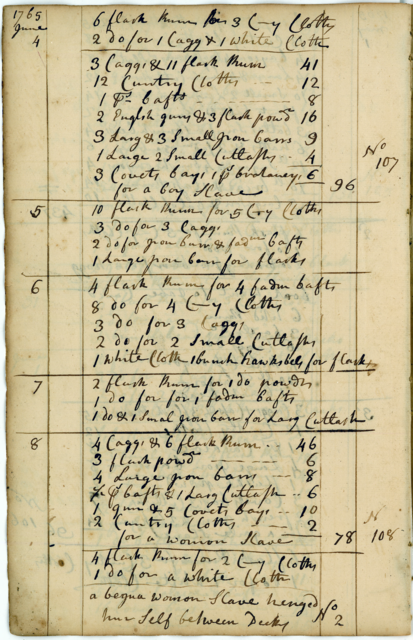 1765
June
4
6 flask Rum for 3 Cny Cloths
2 do for 1 Cagg & 1 white Cloth
3 Caggs & 11 flask Rum 41
12 Cuntry Cloths 12
1 ps bafts 8
2 English guns & 3 flask powdr 16
3 Larg & 3 Small Iron barrs 9
1 Large 2 Small Cutlashs 4
3 Covets bays 6
for a boy Slave 96 No 107
5 10 flask Rum for 5 Cny Cloths
3 do for 3 Caggs
2 do for Iron barr & fadm bafts
1 Large Iron barr for flasks
6 4 flask Rum for 4 fadm bafts
8 do for 4 Cny Cloths
3 do for 3 Caggs
2 do for 2 Small Cutlashs
1 White Cloth 1 bunch hawksbels for flask
7 2 flask Rum for 1 do powdr
1 do for for 1 fadm bafts
1 do & 1 Smal Iron barr for Larg Cutlash
8 4 Caggs & 6 flask Rum 46
3 flask powdr 6
4 Large Iron barrs 8
ps bafts & 1 Larg Cutlash 6
1 gun & 5 Covets bays 10
2 Cuntry Cloths 2
for a womon Slave 78 N 108
4 flask Rum for 2 Cny Cloths
1 do for a white Cloth
a bequa womon Slave henged No
hur Self between Decks 2